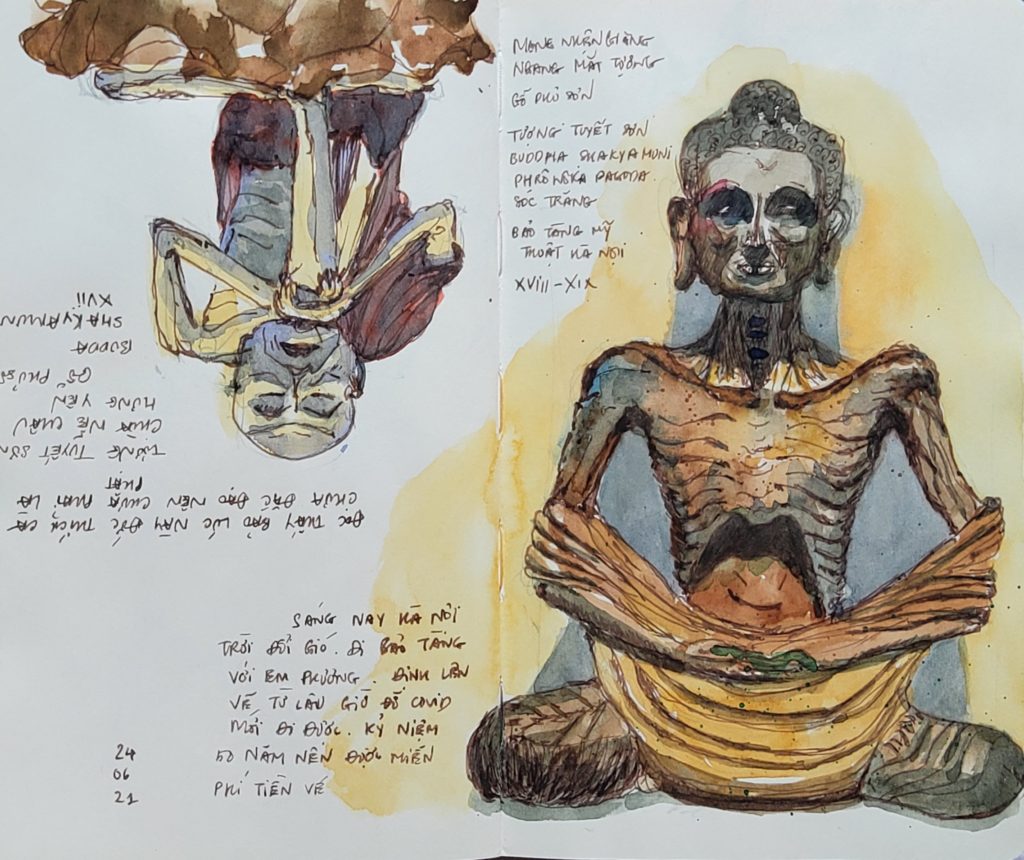 MẠNG NHỆN GIĂNG
NGANG MẮT TƯỢNG
GỖ PHỦ SƠN
TƯỢNG TUYẾT SƠN
BUDDHA SHAKYAMUNI
PAGODA
SÓC TRĂNG
BẢO TÀNG MỸ
THUẬT HÀ NỘI
XVIII-XIX
ĐỌC THẤY BẢO LÚC NÀY ĐỨC THÍCH CA
CHƯA ĐẮC ĐẠO NÊN CHƯA PHẢI LÀ
PHẬT
TƯỢNG TUYẾT SƠN
CHÙA NỄ CHÂU
HƯNG YÊN
GỖ PHỦ SƠ
BUDDA
SHAKYAMUN
XVII
SÁNG NAY HÀ NỘI
TRỜI ĐỔI GIÓ. ĐI BẢO TÀNG
VỚI EM PHƯƠNG. ĐỊNH LÊN
VẼ TỪ LÂU GIỜ ĐỠ COVID
MỚI ĐI ĐƯỢC. KỶ NIỆM
50 NĂM NÊN ĐƯỢC MIỄN
PHÍ TIỀN VÉ
24
06
21